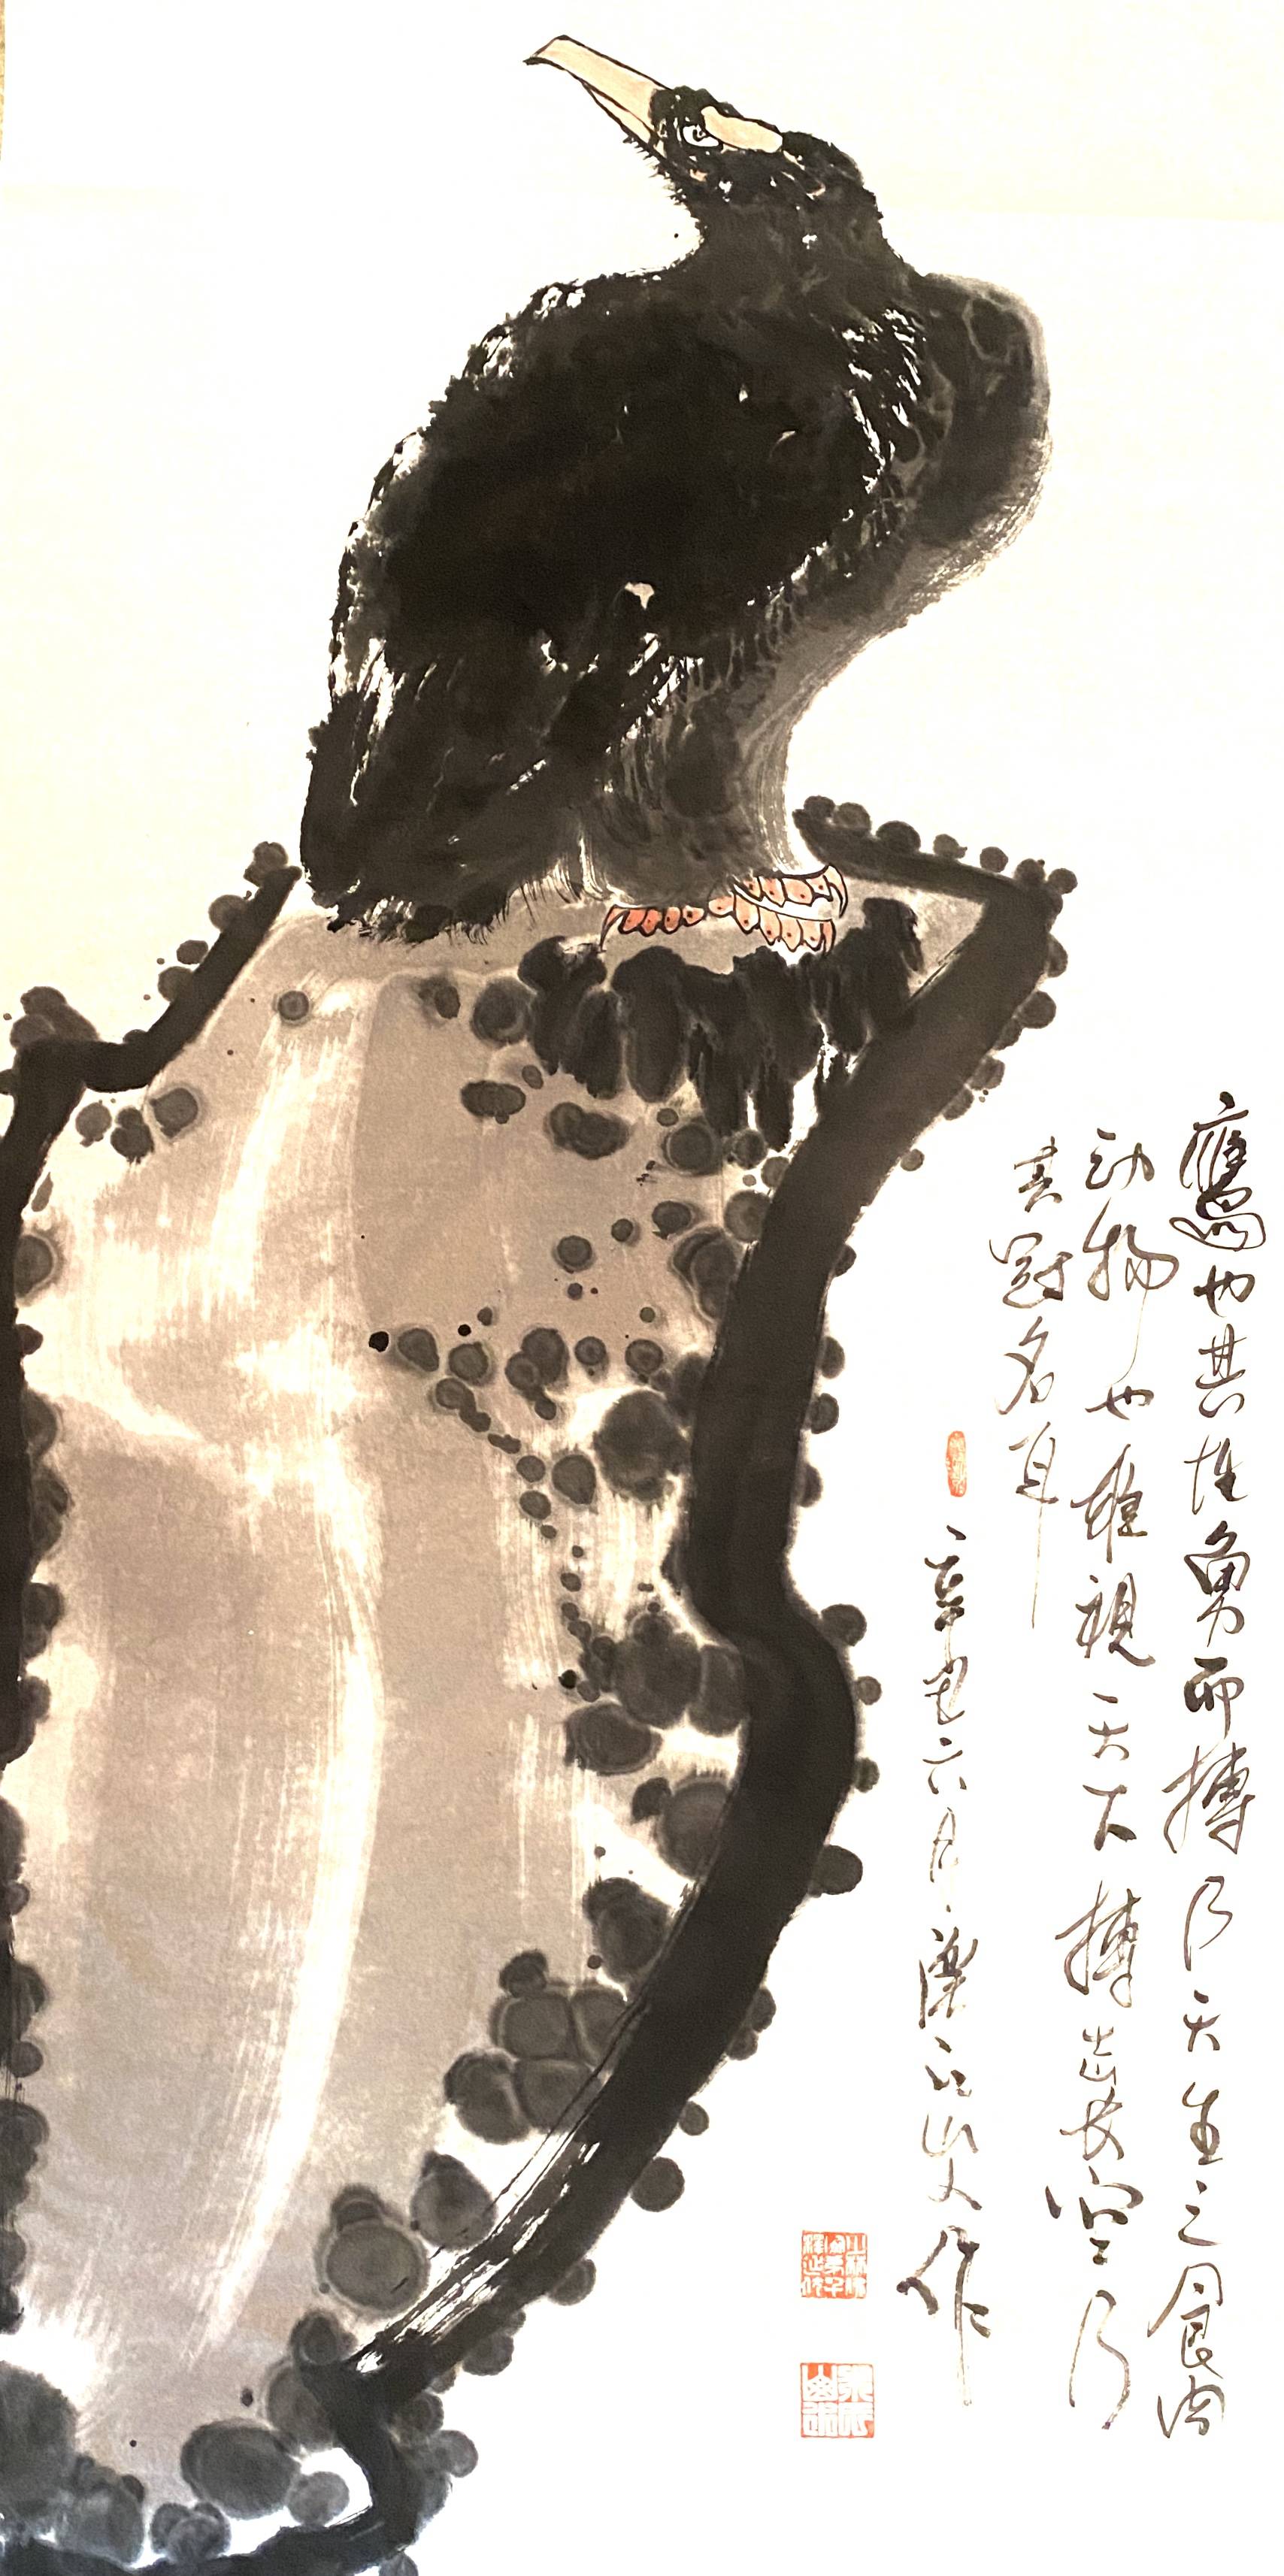 鷹也其性勇而搏乃天生之食肉
动物也雄视天下搏击长空乃
其冠名耳
辛巳六月梁石山人作